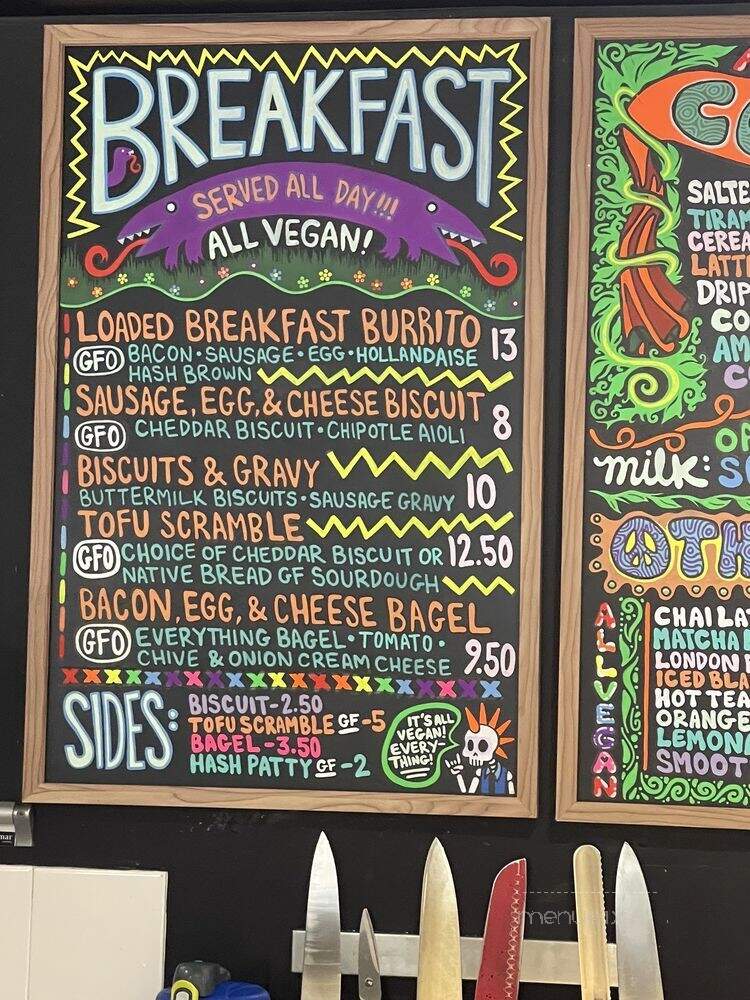 BREAKFAST
SERVED ALL DAY!!!
ALL VEGAN!
LOADED BREAKFAST BURRITO 13
GFO BACON • SAUSAGE • EGG • HOLLANDAISE
HASH BROWN
SAUSAGE, EGG, & CHEESE BISCUIT 8
GFO CHEDDAR BISCUIT • CHIPOTLE AIOLI
BISCUITS & GRAVY 10
BUTTERMILK BISCUITS • SAUSAGE GRAVY
TOFU SCRAMBLE 12.50
GFO CHOICE OF CHEDDAR BISCUIT OR
NATIVE BREAD GF SOURDOUGH
BACON, EGG, & CHEESE BAGEL 9.50
GFO EVERYTHING BAGEL • TOMATO •
CHIVE & ONION CREAM CHEESE
SIDES:
BISCUIT-2.50
TOFU SCRAMBLE GF -5
BAGEL -3.50
HASH PATTY GF -2
IT'S ALL
VEGAN!
EVERY-
THING!
SALTE
TIRAM
CEREA
LATT
DRIP
CO
AM
milk:
OTH
ALL VEGAN
CHAI LAT
MATCHA
LONDON
ICED BLA
HOT TEA
ORANGE
LEMON
SMOOT